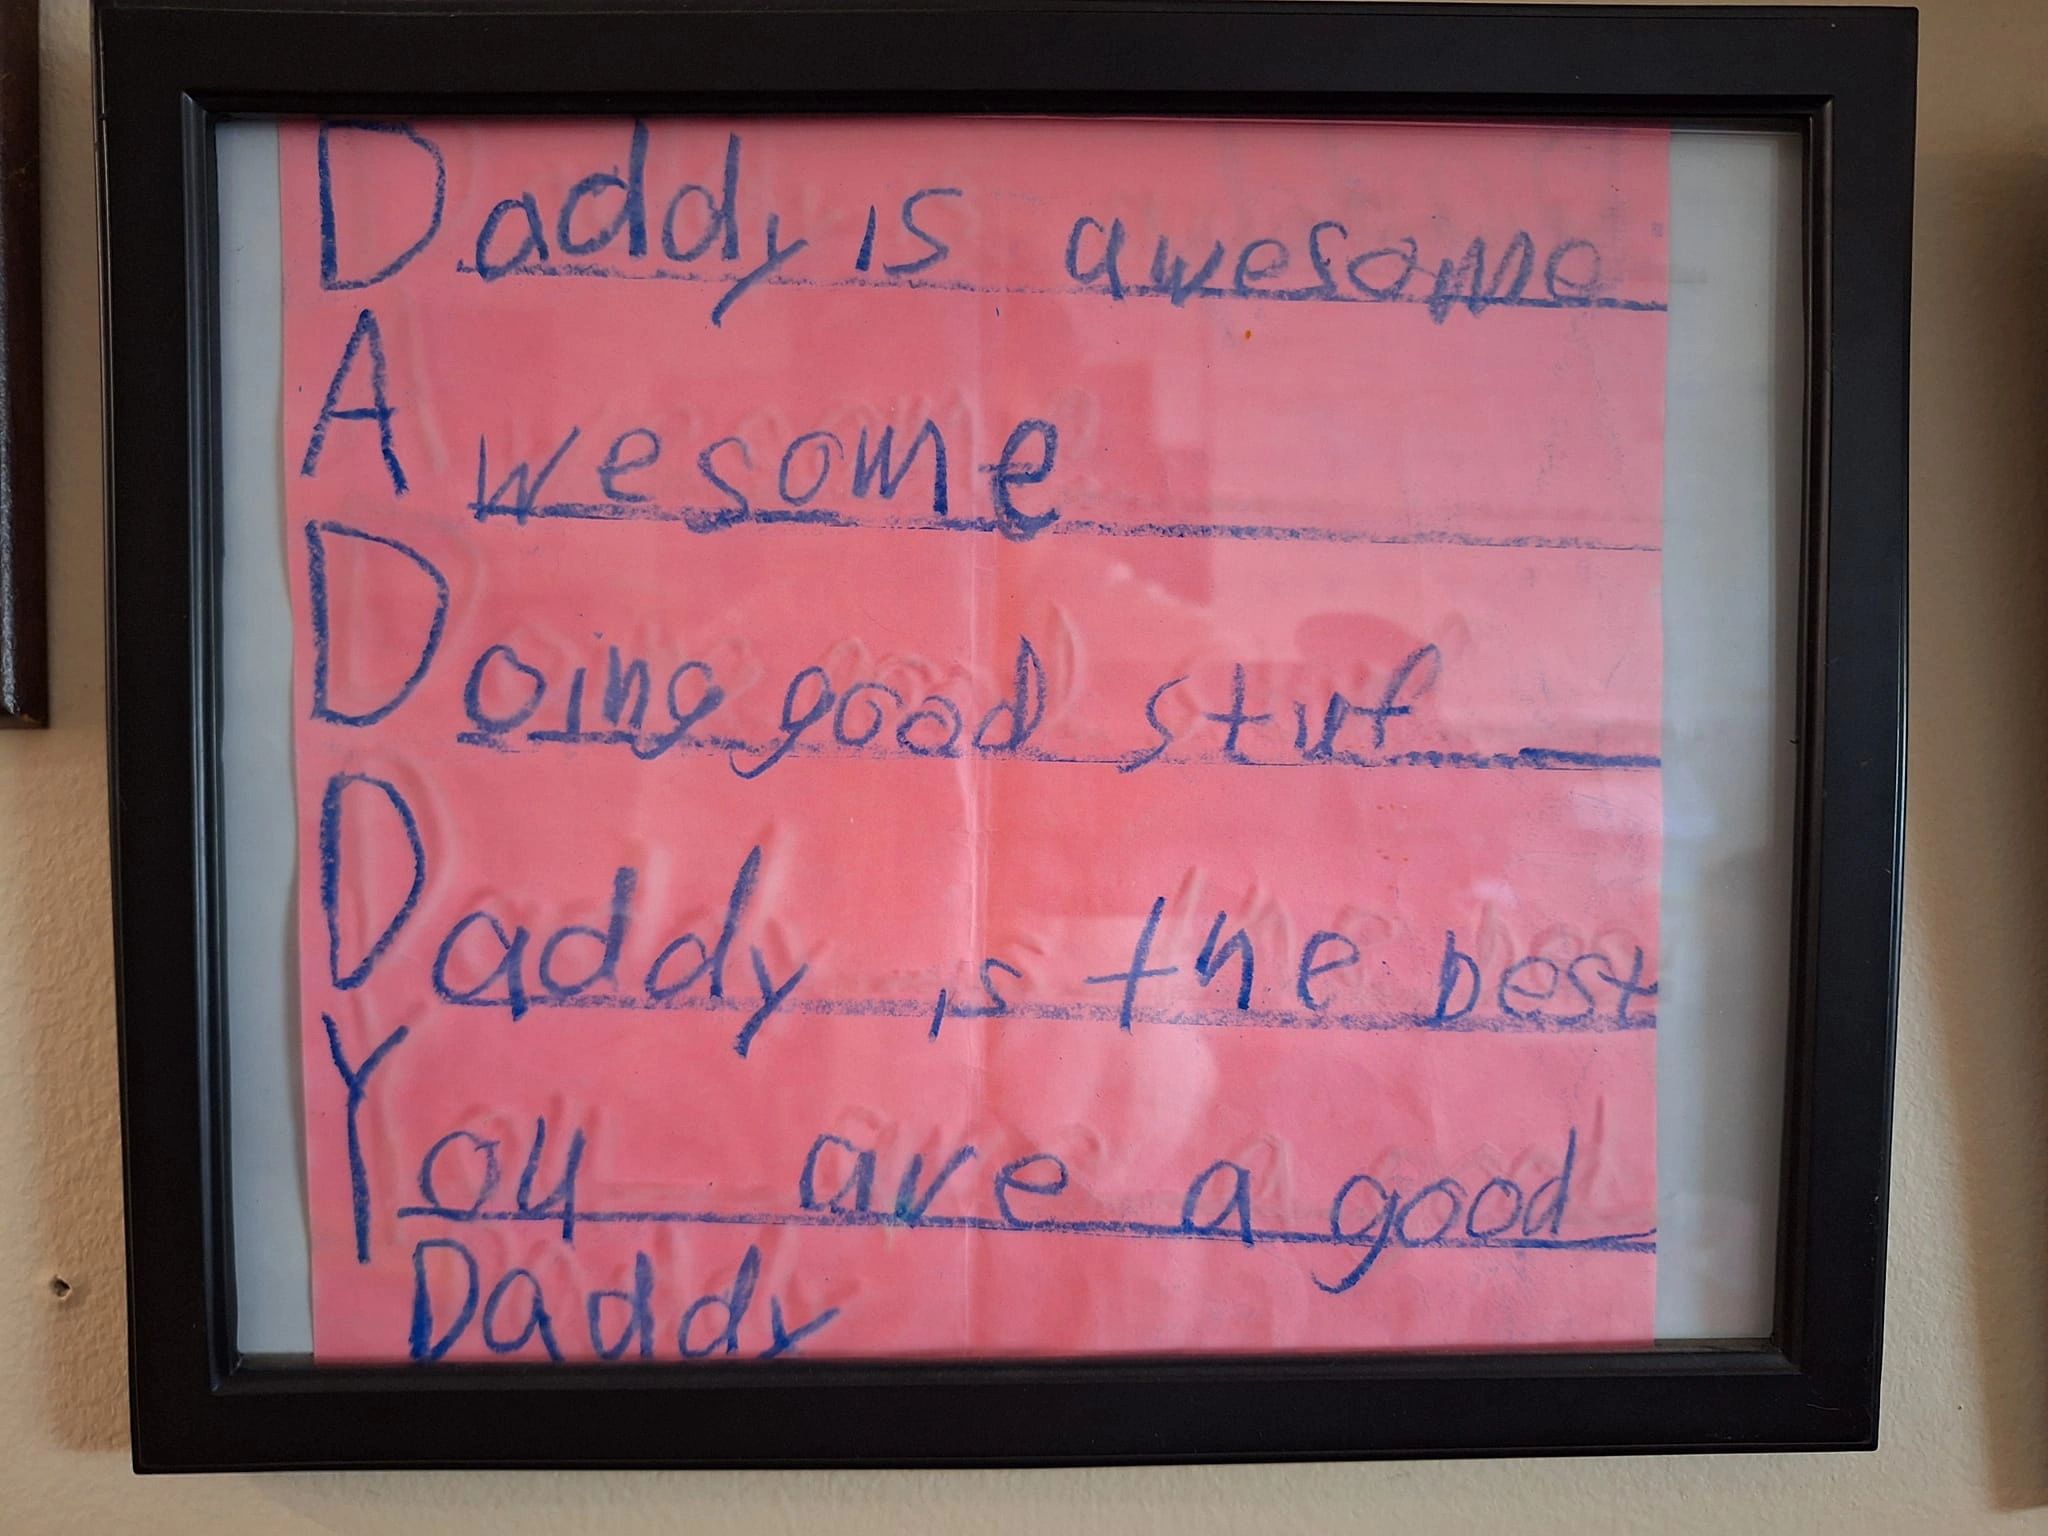 Daddy is awesome
Awesome
Doing good stuf
Daddy is the best
You are a good
Daddy